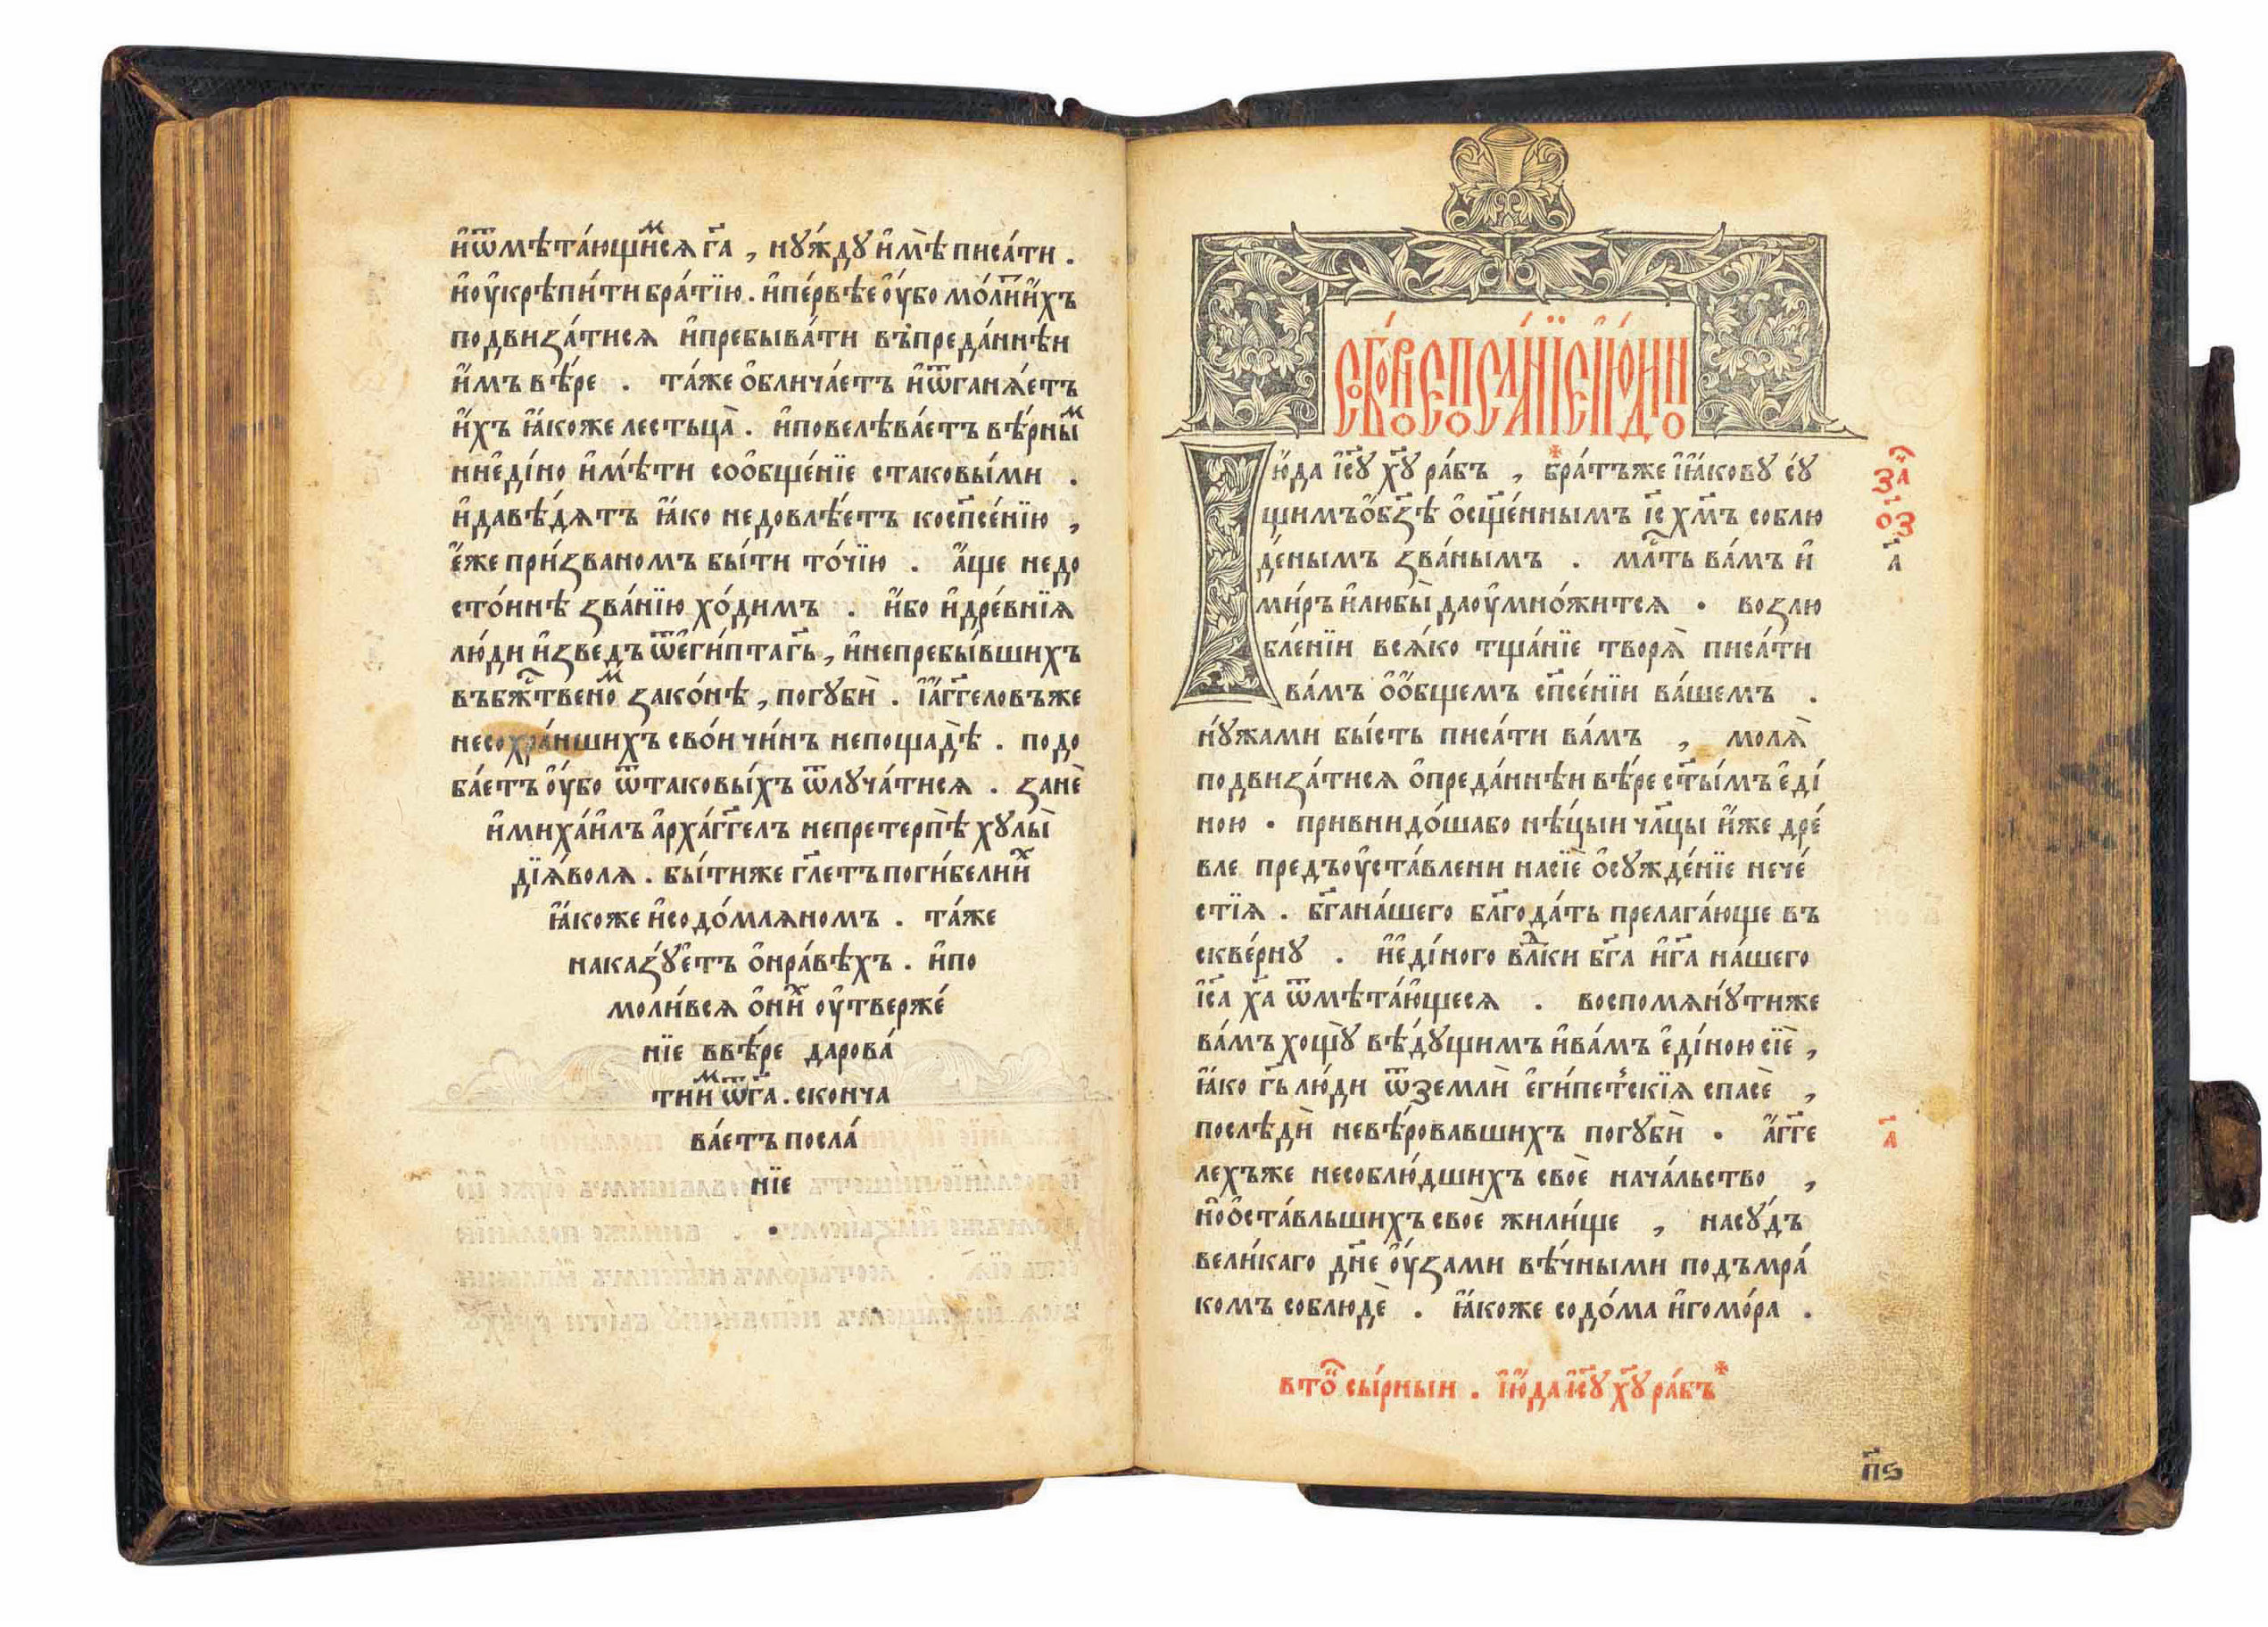 и҆ѿмѣта́ющи́мсѧ гⷭ҇а , нꙋ́ждꙋ и҆мѣ̀ писа́ти .
и҆оу҆крѣпи́ти бра́тїю . и҆пе́рвѣе оу҆́бо мо́литъ и҆́хъ
подвиꙁа́тисѧ и҆пребыва́ти въпреда́ннѣи
и҆́мъ вѣ́ре . та́же ѡ҆блича́етъ и҆ѿганѧ́етъ
и҆́хъ ꙗ҆́коже лестьца̀ . и҆повелѣва́етъ вѣ́рнымⷨ
ниеди́но и҆мѣ́ти соѻбще́нїе стаковы́ми .
и҆давѣ́дѧтъ ꙗ҆́ко недовлѣ́етъ коспⷭ҇е́нїю ,
е҆́же при́ꙁваномъ бы́ти то́чїю . а҆́ще недо
сто́инѣ ꙁва́нїю хо́димъ . и҆́бо и҆дре́внїѧ
лю́ди и҆ꙁве́дъ ѿе҆ги́пта гⷭ҇ь , и҆непребы́вшихъ
въбжⷭ҇твеноⷨ ꙁако́нѣ , погꙋбѝ . І҆а҆́гг҃еловъже
несохра́ншихъ сво́и чи́нъ непощадѣ̀ . подо
ба́етъ оу҆́бо ѿтаковы́хъ ѿлꙋча́тисѧ . ꙁанѐ
и҆миха́илъ а҆рха́гг҃елъ непретерпѣ̀ хꙋлы̀
дїѧ́волѧ . бы́тиже гл҃етъ поги́бели иⷯ
ꙗ҆́коже и҆содо́млѧномъ . та́же
накаꙁꙋ́етъ ѻ҆нра́вѣхъ . и҆по
моли́всѧ ѻ҆ниⷯ оу҆тверже́
нїе ввѣ́ре дарова́
тииⷨ ѿгⷭ҇а . сконча
ва́етъ посла́
нїе
.
собо́рное посла́нїе і҆ю́дино
І҆ю́да і҆с҃ꙋ хⷭ҇ꙋ ра́бъ , бра́тъже і҆ꙗ҆́ковꙋ сꙋ́
щимъ ѻ҆бꙁѣ ѻ҆сщ҃е́ннымъ і҆с҃ хⷭ҇мъ соблю
де́нымъ ꙁва́нымъ . млⷭ҇ть ва́мъ и҆
ми́ръ и҆любы̀ даоу҆мно́житсѧ . воꙁлю
бле́нїи всѧ́ко тща́нїе творѧ̀ писа́ти
ва́мъ ѻ҆ѻ҆́бщемъ спⷭ҇е́нїи ва́шемъ .
нꙋ́жами бы́сть писа́ти ва́мъ , молѧ̀
подвиꙁа́тисѧ ѻ҆преда́ннѣи вѣ́ре ст҃ы́мъ е҆ди́
ною . привнидо́шабо нѣ́цыи чл҃цы и҆́же дре́
вле предъоу҆ста́влени насїѐ ѻ҆сꙋжде́нїе нече́
стїѧ . бг҃ана́шего блг҃ода́ть прелага́юще въ
скве́рнꙋ . и҆е҆ди́ного влⷣки бг҃а и҆гⷭ҇а на́шего
і҆с҃а хⷭ҇а ѿмѣта́ющесѧ . воспомѧнꙋ́тиже
ва́мъ хощꙋ̀ вѣ́дꙋщимъ и҆ва́мъ е҆ди́ною сїѐ ,
ꙗ҆́ко гⷭ҇ь лю́ди ѿземлѝ е҆ги́петскїѧ спасѐ ,
послѣдѝ невѣ́ровавшихъ погꙋбѝ . а҆́гг҃е
лехъже несоблю́дшихъ своѐ нача́льство ,
и҆ѻ҆ста́вльшихъ свое жили́ще , насꙋ́дъ
вели́каго дн҃е оу҆́ꙁами вѣ́чными подъмра́
комъ соблюдѐ . ꙗ҆́коже содо́ма и҆гомо́ра .
за҃
оз
а҃
а҃
втоⷬ҇ сы́рныи . і҆ю́да і҆с҃ꙋ хⷭ҇ꙋ ра́бъ
п҃ѕ